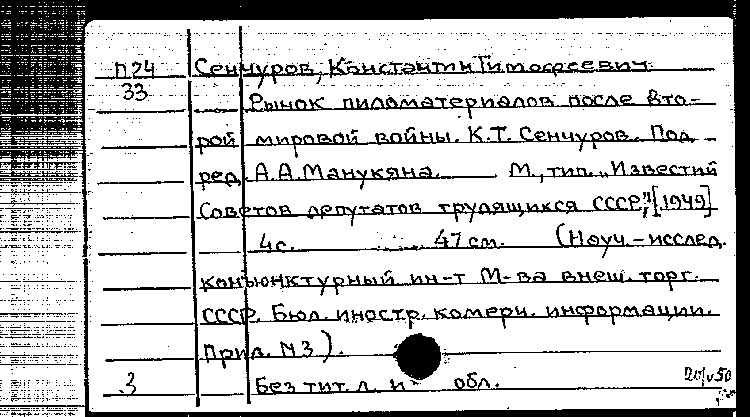 П24 Сенчуров, Константин Тимофеевич
33 Рынок пиломатериалов после вто-
рой мировой войны. К.Т. Сенчуров. Под
ред. А.А. Манукяна. М., тип. „Известий
Советов депутатов трудящихся СССР", [1949]
4 с. 47 см. (Науч.-исслед.
конъюнктурный ин-т М-ва внеш. торг.
СССР. Бюл. иностр. комерч. информации.
Прил. № 3).
3 Без тит. л. и обл.